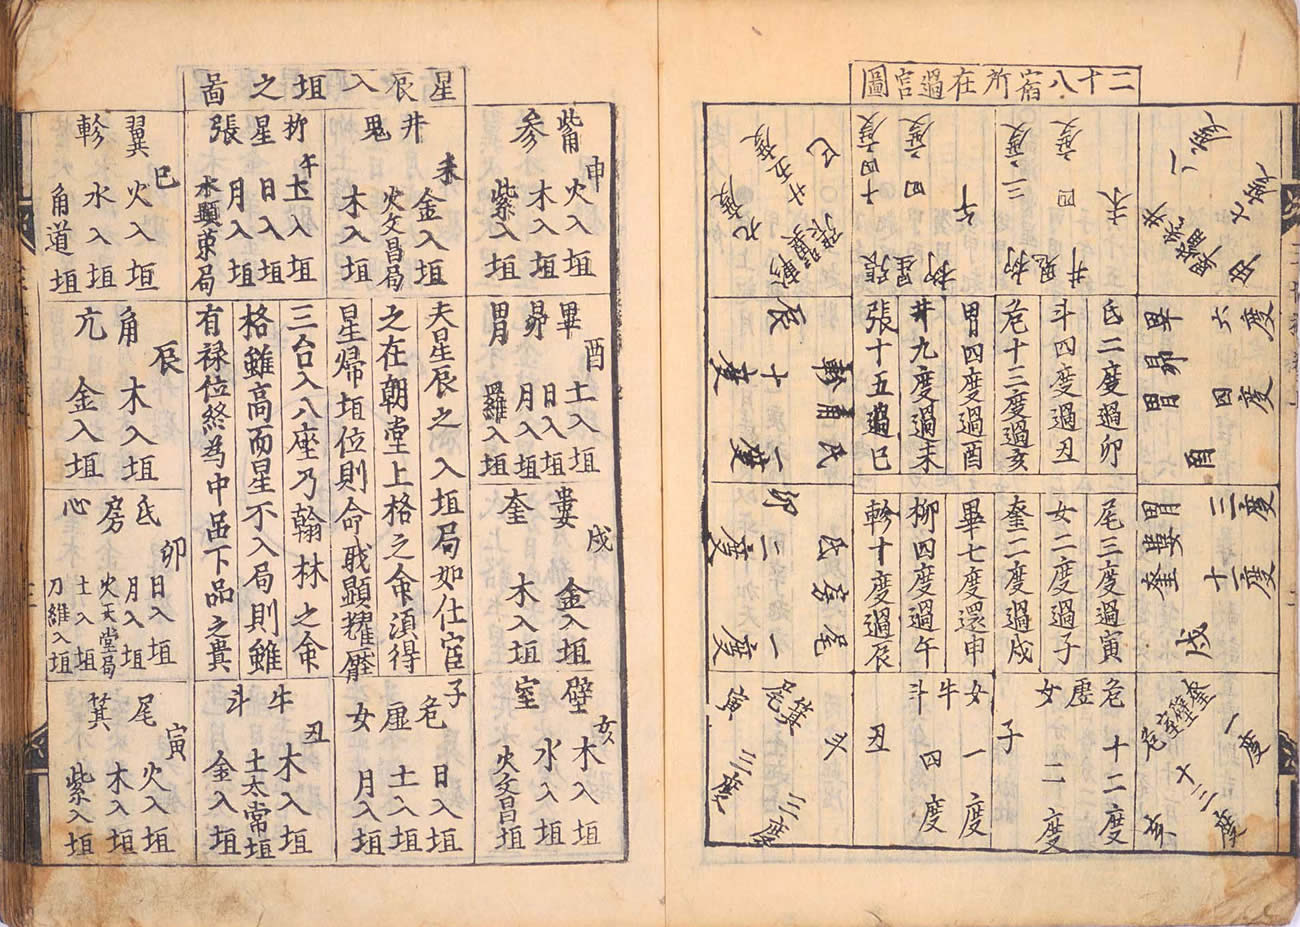 二十八宿所在過宮圖
氐二度過卯
斗四度過丑
危十三度過亥
胃四度過酉
井九度過未
張十五過巳
尾三度過寅
女二度過子
奎二度過戌
畢七度還申
柳四度過午
軫十度過辰
未
井鬼柳
午
柳星張
巳
張翼軫
辰
軫角氐
十度
一度
卯
氐房尾
三度
一度
寅
尾箕斗
三度
三度
丑
斗牛女
四度
一度
子
女虛危
二度
十二度
亥
危室壁奎
十二度
一度
戌
奎婁胃
十二度
三度
酉
胃昴畢
四度
六度
星辰入垣之啚
申
觜火入垣
參木入垣
紫入垣
未
井金入垣
鬼火文昌局
木入垣
午
柳土入垣
星日入垣
張月入垣
水顯東局
巳
翼火入垣
軫水入垣
角道垣
辰
角木入垣
亢金入垣
卯
氐房心
日入垣
月入垣
火天堂局
土入垣
刀維入垣
寅
尾火入垣
箕木入垣
紫入垣
丑
牛木入垣
斗土太常垣
金入垣
子
危日入垣
虛土入垣
女月入垣
亥
壁木入垣
室水入垣
火文昌垣
戌
婁金入垣
奎木入垣
酉
畢土入垣
昴日入垣
月入垣
胃羅入垣
夫星辰之入垣局如仕宦
之在朝堂上格之命須得
星帰垣位則命戝顯耀
三台入八座乃翰林之命
格雖高而星不入局則雖
有禄位終為中品下品之貴